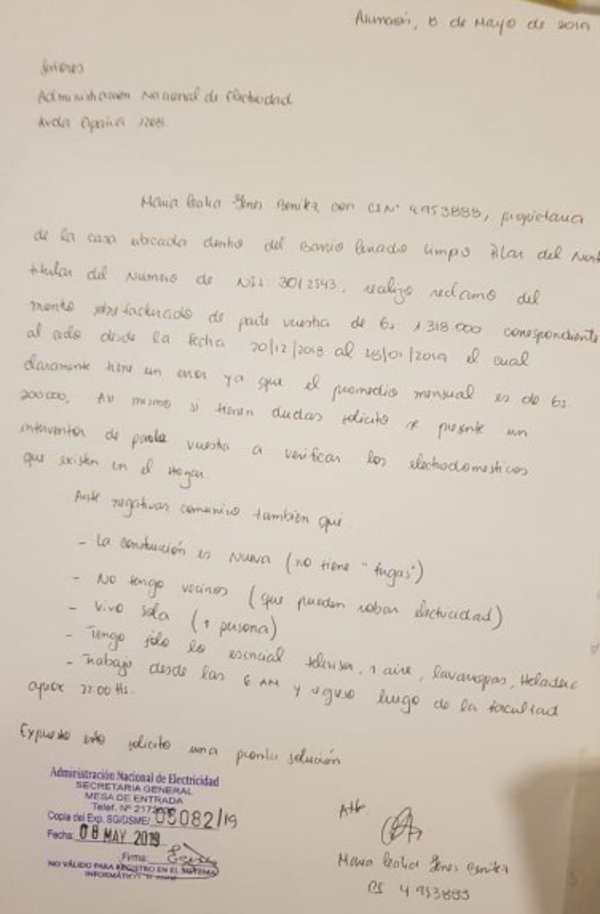 Asunción, 8 de Mayo de 2019
Señores
Administracion Nacional de Electricidad
Avda España 1268
Maria Benitez con CI N° 4953883, propietaria
de la casa ubicada dentro del Barrio Cerrado Limpio Pilar del Norte
titular del Numero de NIS 3012543, realizo reclamo del
monto sobrefacturado de parte vuestra de Gs 1.318.000 correspondiente
al año desde la fecha 20/12/2018 al 28/01/2019 el cual
claramente tiene un error ya que el promedio mensual es de Gs.
200.000, Asi mismo si tienen dudas solicito se presente un
interventor de parte vuestra a verificar los electrodomesticos
que existen en el Hogar
Ante negativas comunico tambien que
- La construcción es Nueva (no tiene "fugas")
- No tengo vecinos (que puedan robar electricidad)
- Vivo sola (1 persona)
- Tengo solo lo esencial televisor, 1 aire, lavarropas, Heladera
- Trabajo desde las 6 AM y regreso luego de la facultad
aprox 22:00 Hs.
Expuesto esto solicito una pronta solución
Atte.
Maria Benitez
CI 4953883
Administración Nacional de Electricidad
SECRETARIA GENERAL
MESA DE ENTRADA
Telef. N°
Copia del Exp. SG/DSME/ 05082/19
Fecha: 08 MAY 2019
Firma:
NO VÁLIDO PARA REGISTRO EN EL SISTEMA
INFORMÁTICO